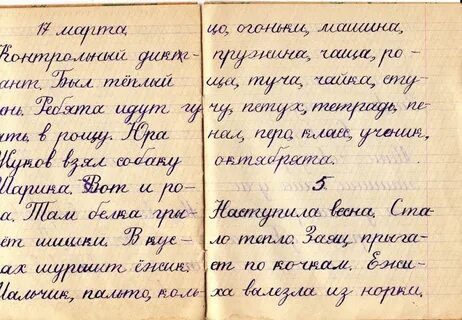 17 марта
Контрольный дикт-
ант. Был тёплый
ень. Ребята идут гу
ять в рощу. Юра
Жуков взял собаку
Шарика. Вот и ро-
а. Там белка гры
ёт шишки. В кус-
ах шуршит ёжик.
Мальчик, пальто, коль-
цо, огоньки, машина,
пружина, чаща, ро-
ща, туча, чайка, сту-
чу, петух, тетрадь, пе-
нал, перо, класс, ученик,
октябрята.
5.
Наступила весна. Ста-
ло тепло. Заяц прыга-
ет по кочкам. Ежи-
ха вылезла из норки.